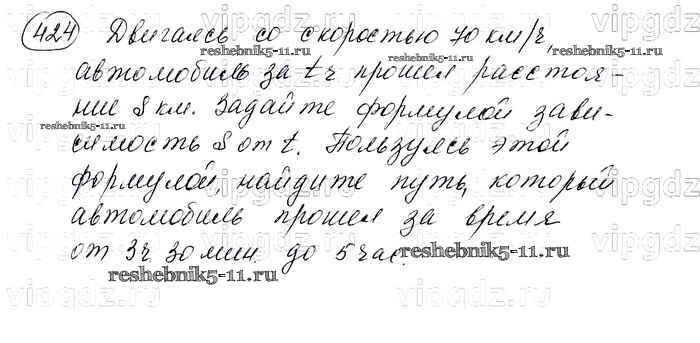 424 Двигаясь со скоростью 70 км/ч,
reshebnik5-11.ru reshebnik5-11.ru
автомобиль за t ч прошел расстоя-
ние S км. Задайте формулой зави-
reshebnik5-11.ru
симость S от t. Пользуясь этой
формулой, найдите путь, который
автомобиль прошел за время
от 3ч 30 мин. до 5 час.
reshebnik5-11.ru reshebnik5-11.ru
vipgdz vipgdz vipgdz